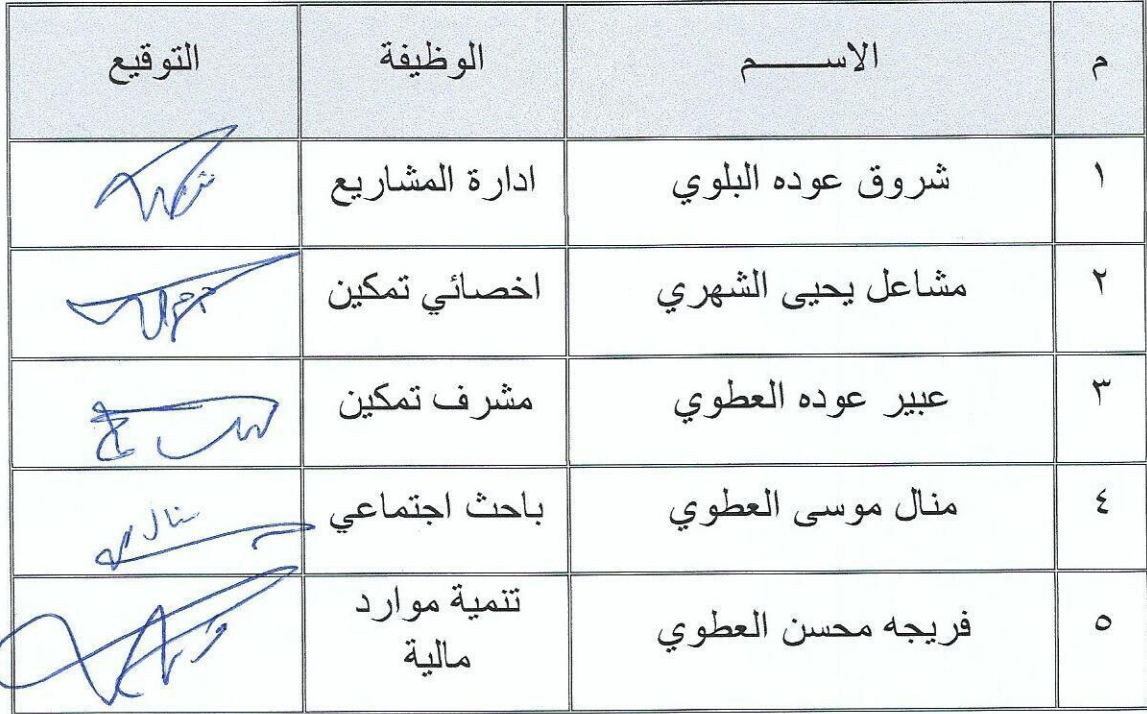 م الاســـــم الوظيفة التوقيع
١ شروق عوده البلوي ادارة المشاريع
٢ مشاعل يحيى الشهري اخصائي تمكين
٣ عبير عوده العطوي مشرف تمكين
٤ منال موسى العطوي باحث اجتماعي منال
٥ فريجه محسن العطوي تنمية موارد
مالية